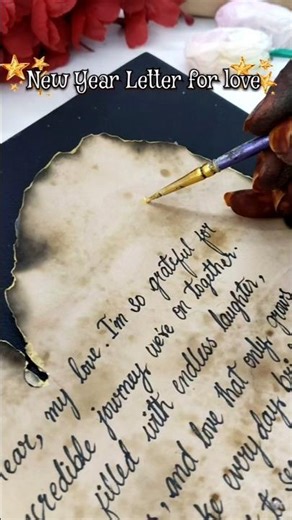 New Year Letter for love
year, my love. I'm so grateful for
incredible journey we're on together.
filled with endless laughter,
, and love that only grows
ke every day
to se